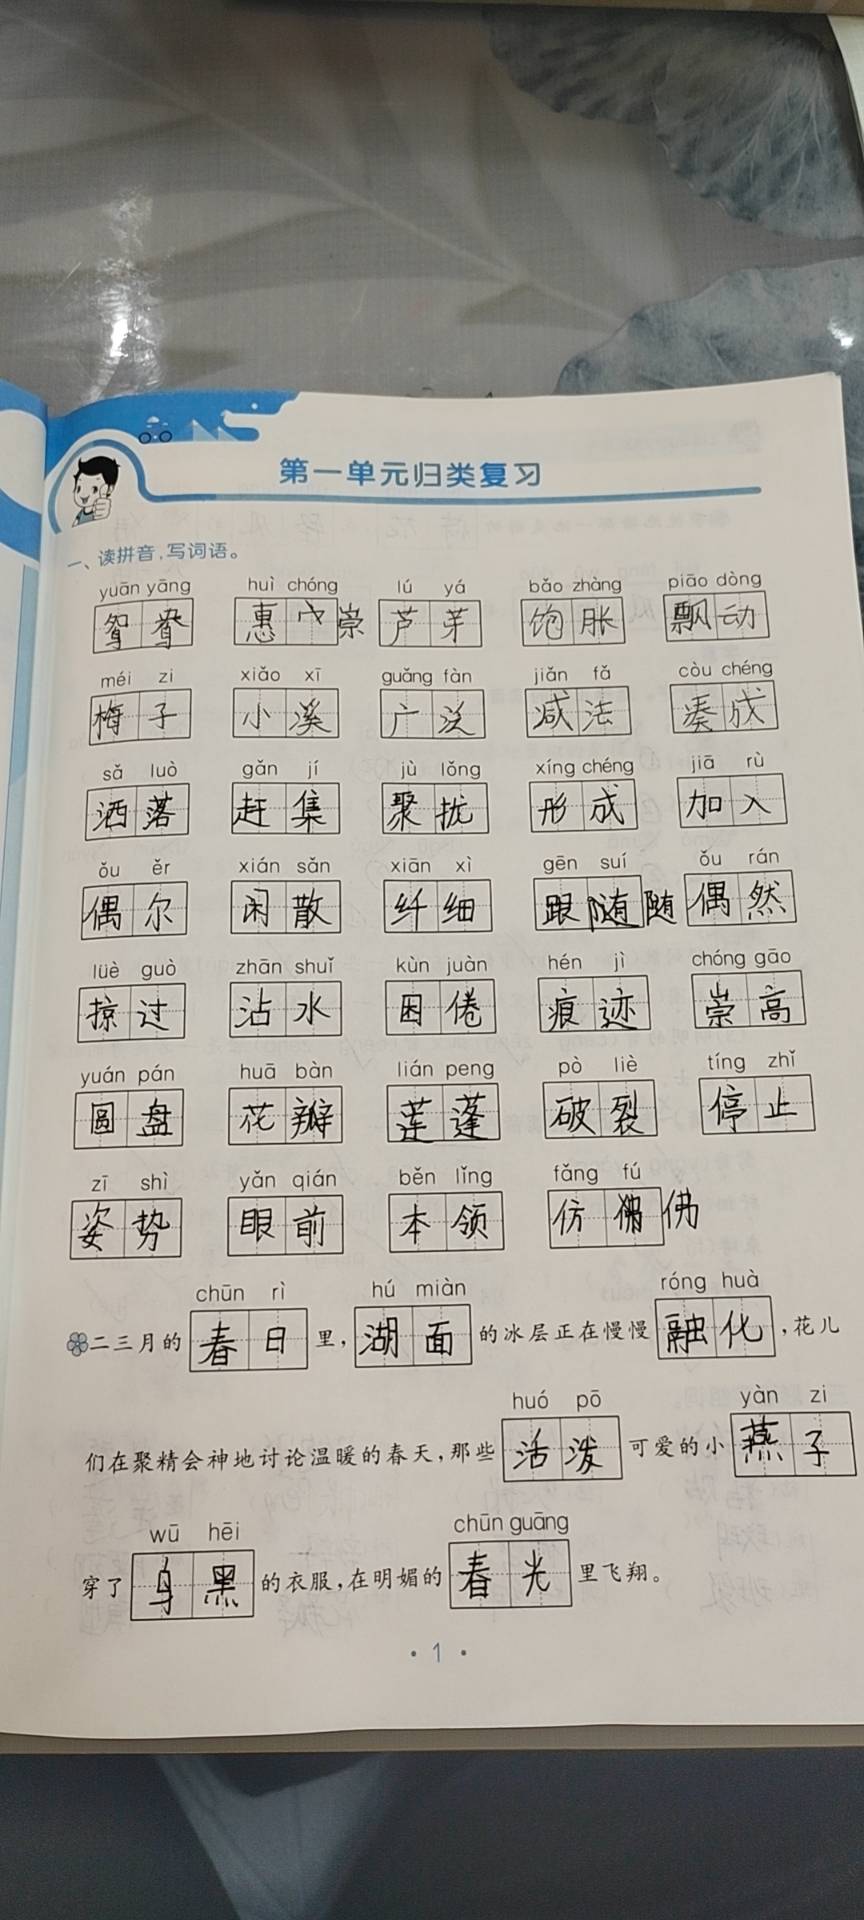 第一单元归类复习
一、读拼音,写词语。
yuān yāng huì chóng lú yá bǎo zhàng piāo dòng
鸳鸯 惠崇 芦芽 饱胀 飘动
méi zi xiǎo xī guǎng fàn jiǎn fǎ còu chéng
梅子 小溪 广泛 减法 凑成
sǎ luò gǎn jí jù lǒng xíng chéng jiā rù
洒落 赶集 聚扰 形成 加入
ǒu ěr xián sǎn xiān xì gēn suí ǒu rán
偶尔 闲散 纤细 跟随随 偶然
lüè guò zhān shuǐ kùn juàn hén jì chóng gāo
掠过 沾水 困倦 痕迹 崇高
yuán pán huā bàn lián peng pò liè tíng zhǐ
圆盘 花瓣 莲蓬 破裂 停止
zī shì yǎn qián běn lǐng fǎng fú
姿势 眼前 本领 仿佛
chūn rì hú miàn róng huà
二三月的春日里,湖面的冰层正在慢慢融化,花儿
huó pō yàn zi
们在聚精会神地讨论温暖的春天,那些活泼可爱的小燕子
wū hēi chūn guāng
穿了黑的衣服,在明媚的春光里飞翔。
·1·